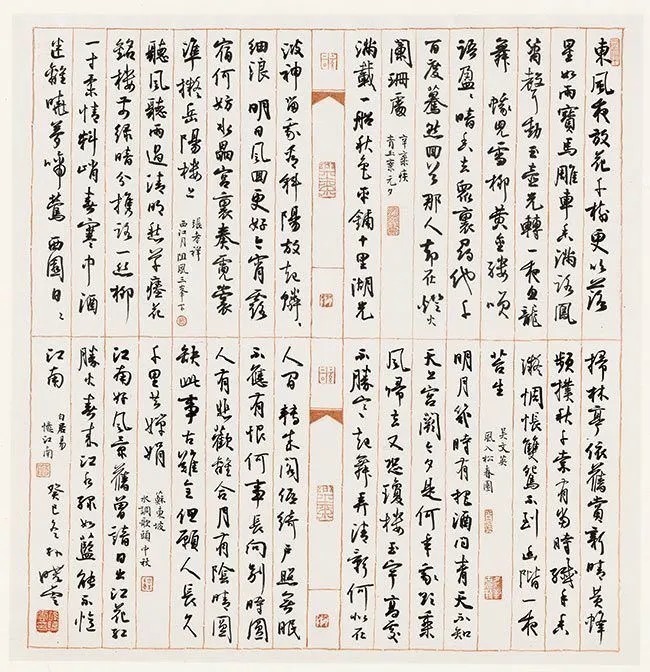 東風夜放花千樹更吹落
星如雨寶馬雕車香滿路鳳
簫聲動玉壺光轉一夜魚龍
舞 蛾兒雪柳黃金縷笑
語盈盈暗香去眾裏尋他千
百度驀然回首那人卻在燈火
闌珊處
辛棄疾
青玉案元夕
滿載一船秋色平鋪十里湖光
波神留我看斜陽放起鱗鱗
細浪 明日風回更好今宵露
宿何妨水晶宮裏奏霓裳
準擬岳陽樓上
張孝祥
西江月阻風三峯下
聽風聽雨過清明愁草瘞花
銘樓前綠暗分攜路一絲柳
一寸柔情料峭春寒中酒
迷離曉夢啼鶯 西園日日
掃林亭依舊賞新晴黃蜂
頻撲秋千索有當時纖手香
凝惆悵雙鴛不到幽階一夜
苔生
吳文英
風入松春園
明月幾時有把酒問青天不知
天上宮闕今夕是何年我欲乘
風歸去又恐瓊樓玉宇高處
不勝寒起舞弄清影何似在
人間 轉朱閣低綺戶照無眠
不應有恨何事長向別時圓
人有悲歡離合月有陰晴圓
缺此事古難全但願人長久
千里共嬋娟
蘇東坡
水調歌頭中秋
江南好風景舊曾諳日出江花紅
勝火春來江水綠如藍能不憶
江南
白居易
憶江南
癸巳冬孫曉雲